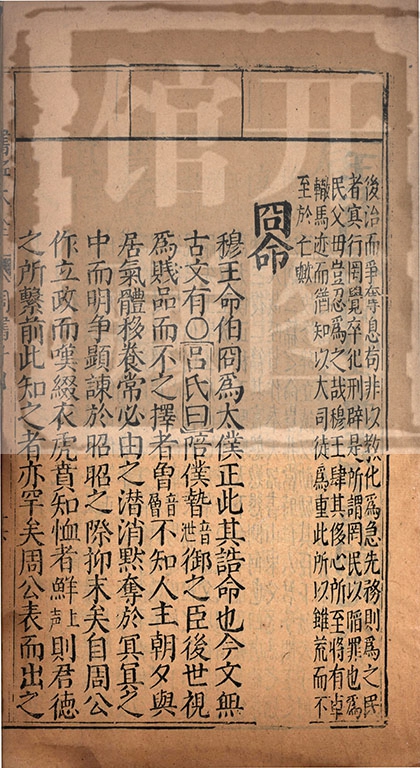 後治而爭奪息苟非以教化爲急先務則爲之民
者寘行罔覺卒化刑辟是所謂罔民以陷罪也爲
民父毋豈忍爲之哉穆王肆其侈心所至將有車
轍馬迹而猶知以大司徒爲重此所以雖荒而不
至於亡歟
冏命
穆王命伯冏爲太僕正此其誥命也今文無
古文有〇呂氏曰陪僕暬音泄御之臣後世視
爲賤品而不之擇者曾音層不知人主朝夕與
居氣體移養常必由之潜消黙奪於冥冥之
中而明爭顯諫於昭昭之際抑末矣自周公
作立政而嘆綴衣虎賁知恤者鮮上聲則君德
之所繫前此知之者亦罕矣周公表而出之